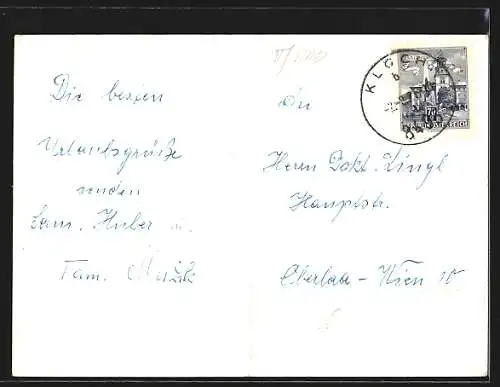 Die besten
Urlaubsgrüße
senden
Fam. Huber u.
Fam.
An
Herrn Dokt. Zingl
Hauptstr.
Oberlaa - Wien 10
70